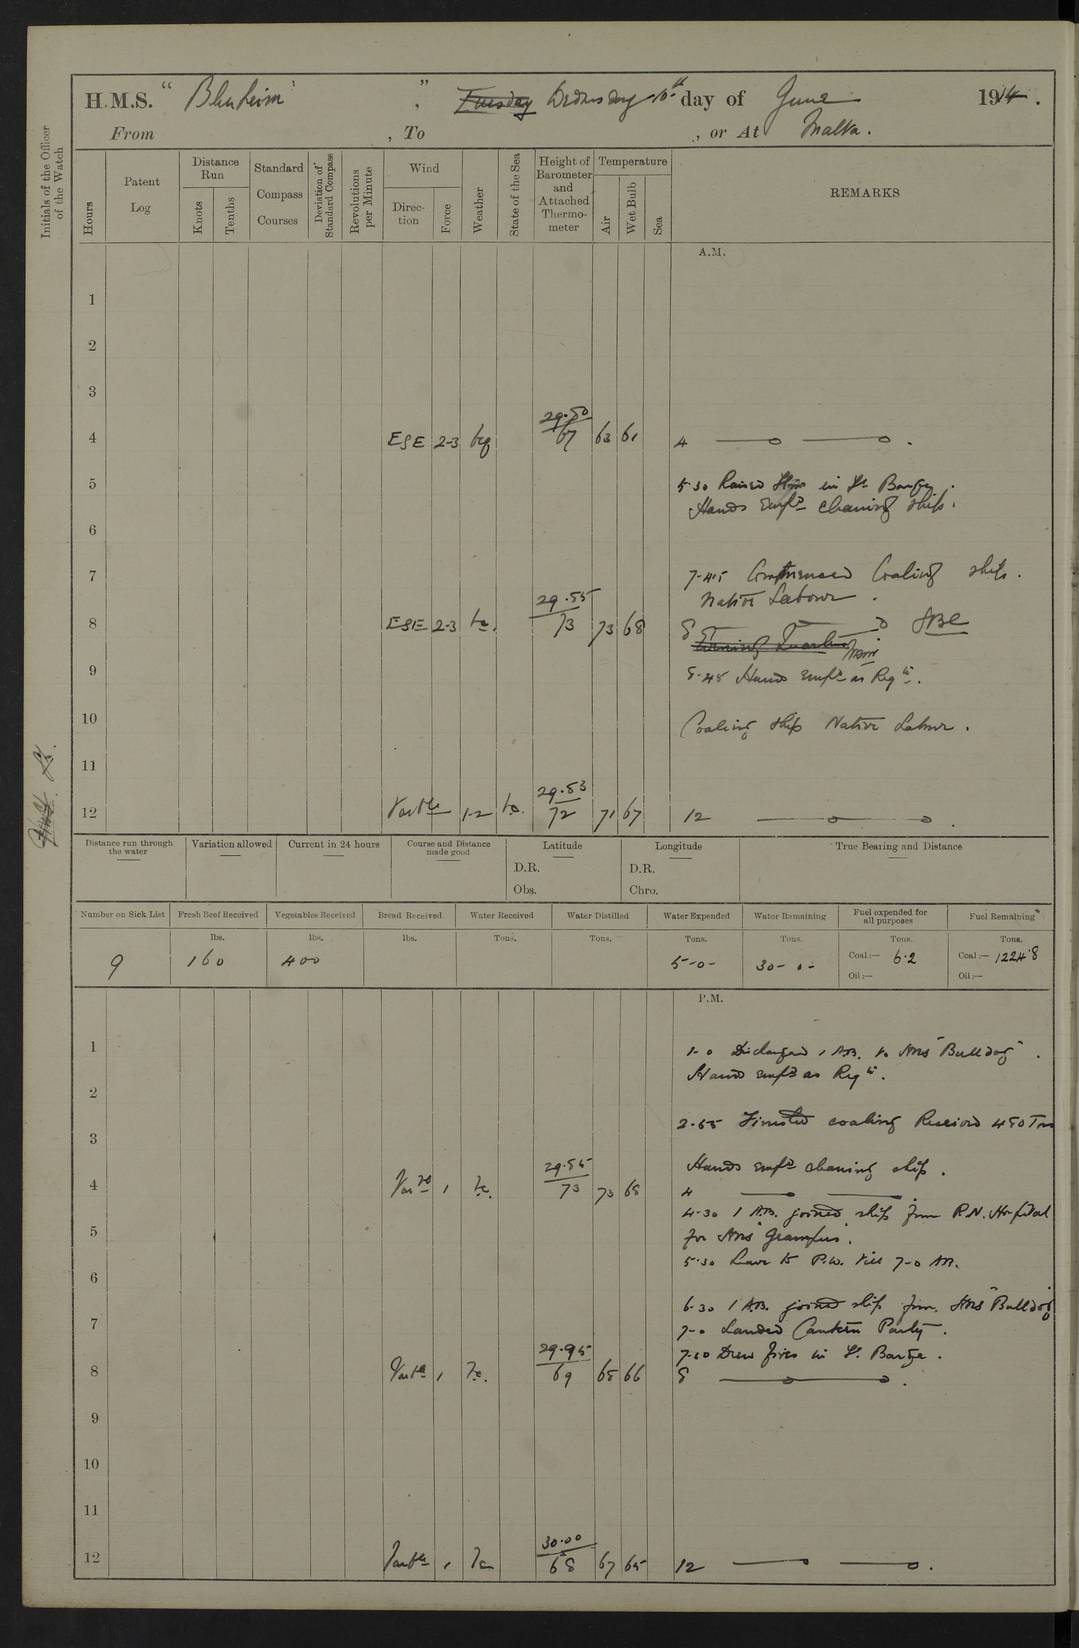 H.M.S. " Blenheim " Tuesday Wednesday 10th day of June 1914.
From , To , or At Malta.
Initials of the Officer of the Watch
Hours
Patent Log
Distance Run
Knots
Tenths
Standard Compass Courses
Deviation of Standard Compass
Revolutions per Minute
Wind
Direction
Force
Weather
State of the Sea
Height of Barometer and Attached Thermometer
Temperature
Air
Wet Bulb
Sea
REMARKS
A.M.
1
2
3
4 ESE 2-3 bcq 29.50 67 63 61 4
5 5.30 Raised Steam in St. Barge.
Hands empd cleaning ship.
6
7 7-45 Commenced Coaling ship.
Native Labour.
8 ESE 2-3 bc. 29.55 73 73 68 8
Evening Quarters
9 8.45 Hands empd as Reqte.
10 Coaling ship Native Labour.
11
12 Varble 1-2 bc. 29.53 72 71 67 12
Distance run through the water
Variation allowed
Current in 24 hours
Course and Distance made good
Latitude
D.R.
Obs.
Longitude
D.R.
Chro.
True Bearing and Distance
Number on Sick List Fresh Beef Received Vegetables Received Bread Received Water Received Water Distilled Water Expended Water Remaining Fuel expended for all purposes Fuel Remaining
lbs. lbs. lbs. Tons. Tons. Tons. Tons. Tons. Tons.
9 160 400 5-0- 30-0- Coal:— 6.2 Coal:— 1224.8
Oil:— Oil:—
P.M.
1 1-0 Discharged 1 AB. to HMS "Bulldog".
Hands empd as Reqte.
2
3 2.55 Finished coaling Received 450 Tons
Hands empd cleaning ship.
4 Varble 1 bc. 29.55 73 73 68 4
4-30 1 AB. joined ship from R.N. Hospital
5 for HMS "Grampus".
5.30 Leave to P.W. till 7-0 AM.
6
6.30 1 AB. joined ship from HMS "Bulldog"
7 7-0 Landed Canteen Party.
7.50 Drew fires in St. Barge.
8 Varble 1 bc. 29.95 69 68 66 8
9
10
11
12 Varble 1 bc 30.00 68 67 65 12